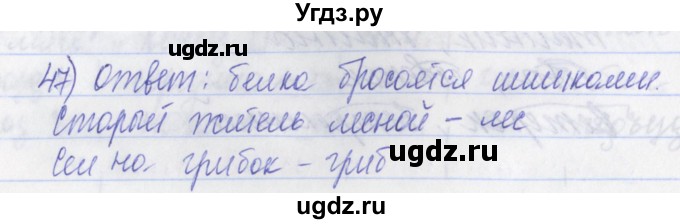 Угдз.ру
gdz.ru
47) Ответ: белка бросается шишками.
Старый житель лесной – лес
Сел на грибок – гриб
gdz.ru
gdz.ru